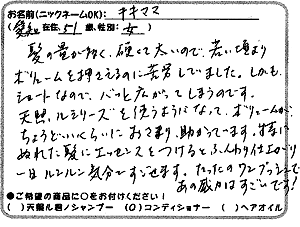 お名前(ニックネームOK): チキママ
(愛知 在住 51 歳、性別: 女 )
髪の量が多く、硬くて太いので、若い頃より
ボリュームを押さえるのに苦労していました。しかも、
ショートなので、パッと広がってしまうのです。
天照、ルシリーズを使うようになって、ボリュームが
ちょうどいいくらいにおさまり、助かってます。特に
ぬれた髪にエッセンスをつけるとふんわり仕上がり
一日ルンルン気分ですごせます。たったのワンプッシュで
あの威力はすごいです!
●ご希望の商品に○をお付けください!
( )天照ル君ノシャンプー (○)コンディショナー ( )ヘアオイル